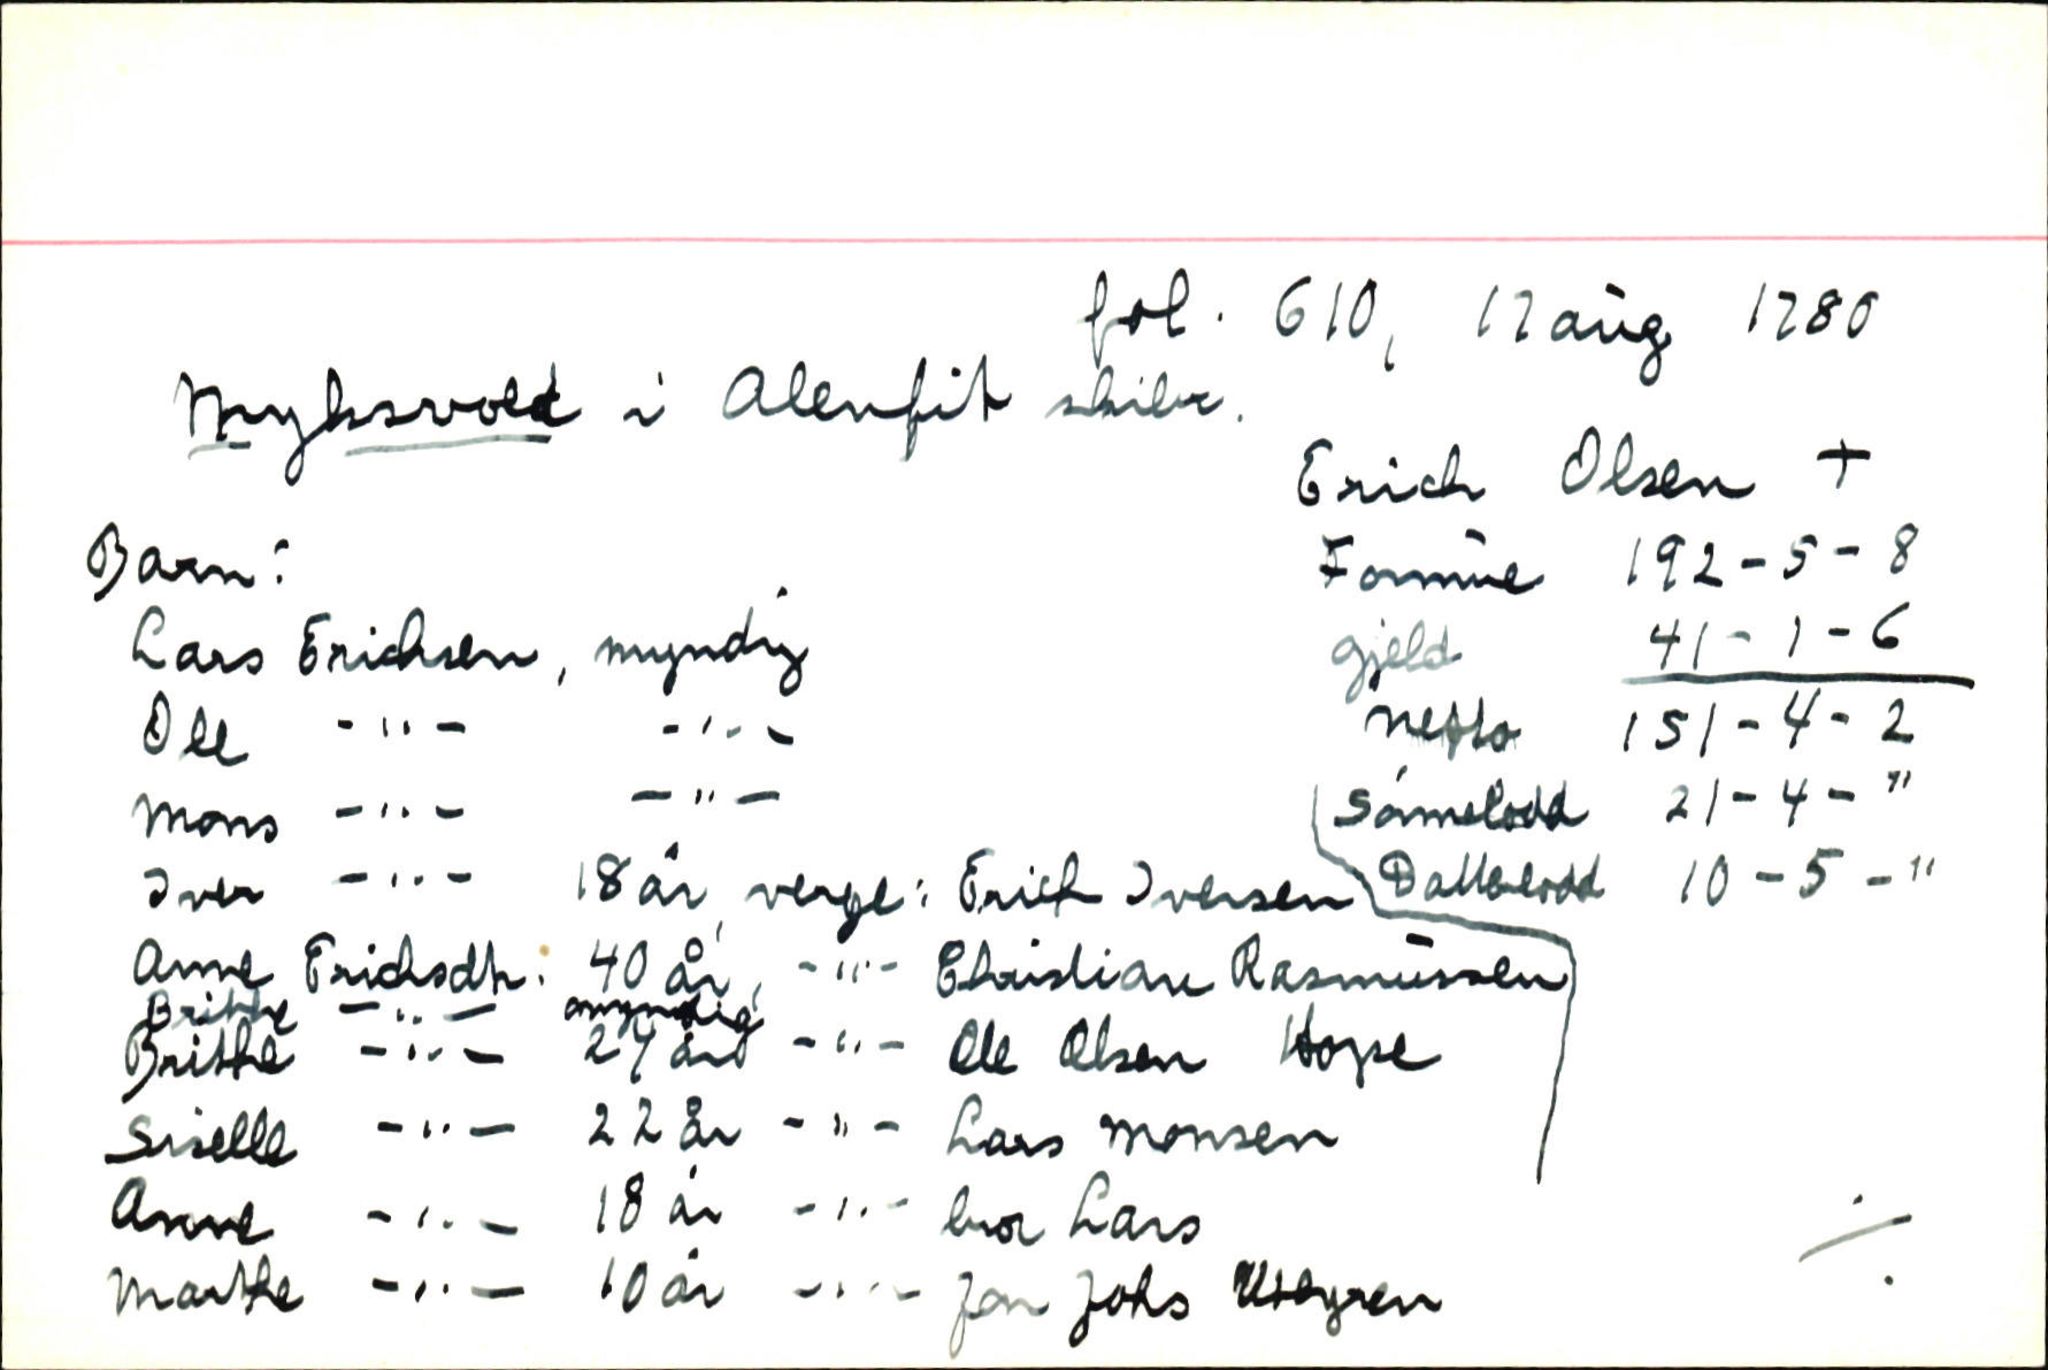 fol. 610, 17 aug 1780
Myksvold i Alenfit skibr.
Erich Olsen +
Formue 192-5-8
gjeld 41-1-6
netto 151-4-2
Sønnelodd 21-4-"
Datterlodd 10-5-"
Barn:
Lars Erichsen, myndig
Ole -"- -"-
Mons -"- -"-
Iver -"- 18 år, verge: Erich Iversen
Anne Erichsdtr: 40 år, -"- Christian Rasmussen
Brithe -"- myndig
Brithe -"- 24 år -"- Ole Olsen Hope
Siselle -"- 22 år -"- Lars Monsen
Anne -"- 18 år -"- bror Lars
Marthe -"- 10 år -"- Jon Johs
./.